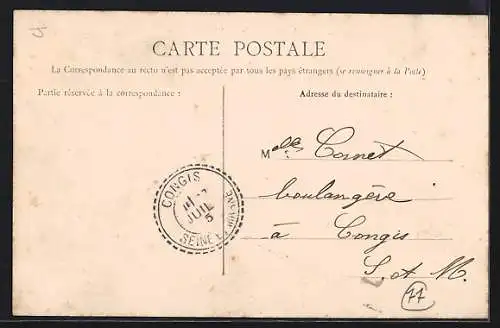 CARTE POSTALE
La Correspondance au recto n'est pas acceptée par tous les pays étrangers (se renseigner à la Poste)
Partie réservée à la correspondance :
Adresse du destinataire :
Melle Cornet
boulangère
à Congis
S. et M.
77
CONGIS
JUIL
5
SEINE ET MARNE